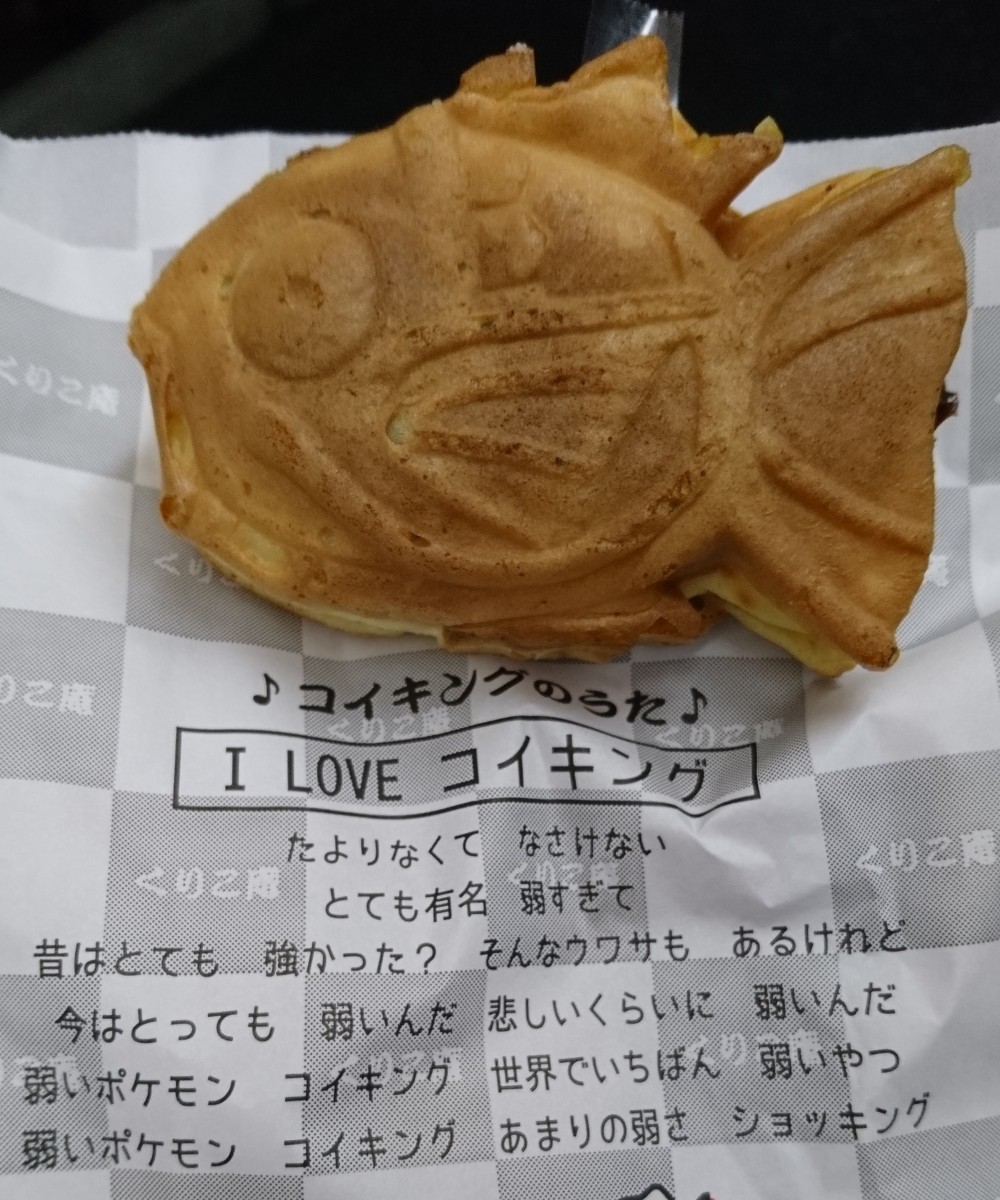 ♪コイキングのうた♪
I LOVE コイキング
たよりなくて なさけない
とても有名 弱すぎて
昔はとても 強かった? そんなウワサも あるけれど
今はとっても 弱いんだ 悲しいくらいに 弱いんだ
弱いポケモン コイキング 世界でいちばん 弱いやつ
弱いポケモン コイキング あまりの弱さ ショッキング
くりこ庵
くりこ庵
くりこ庵
くりこ庵
くりこ庵
くりこ庵
くりこ庵